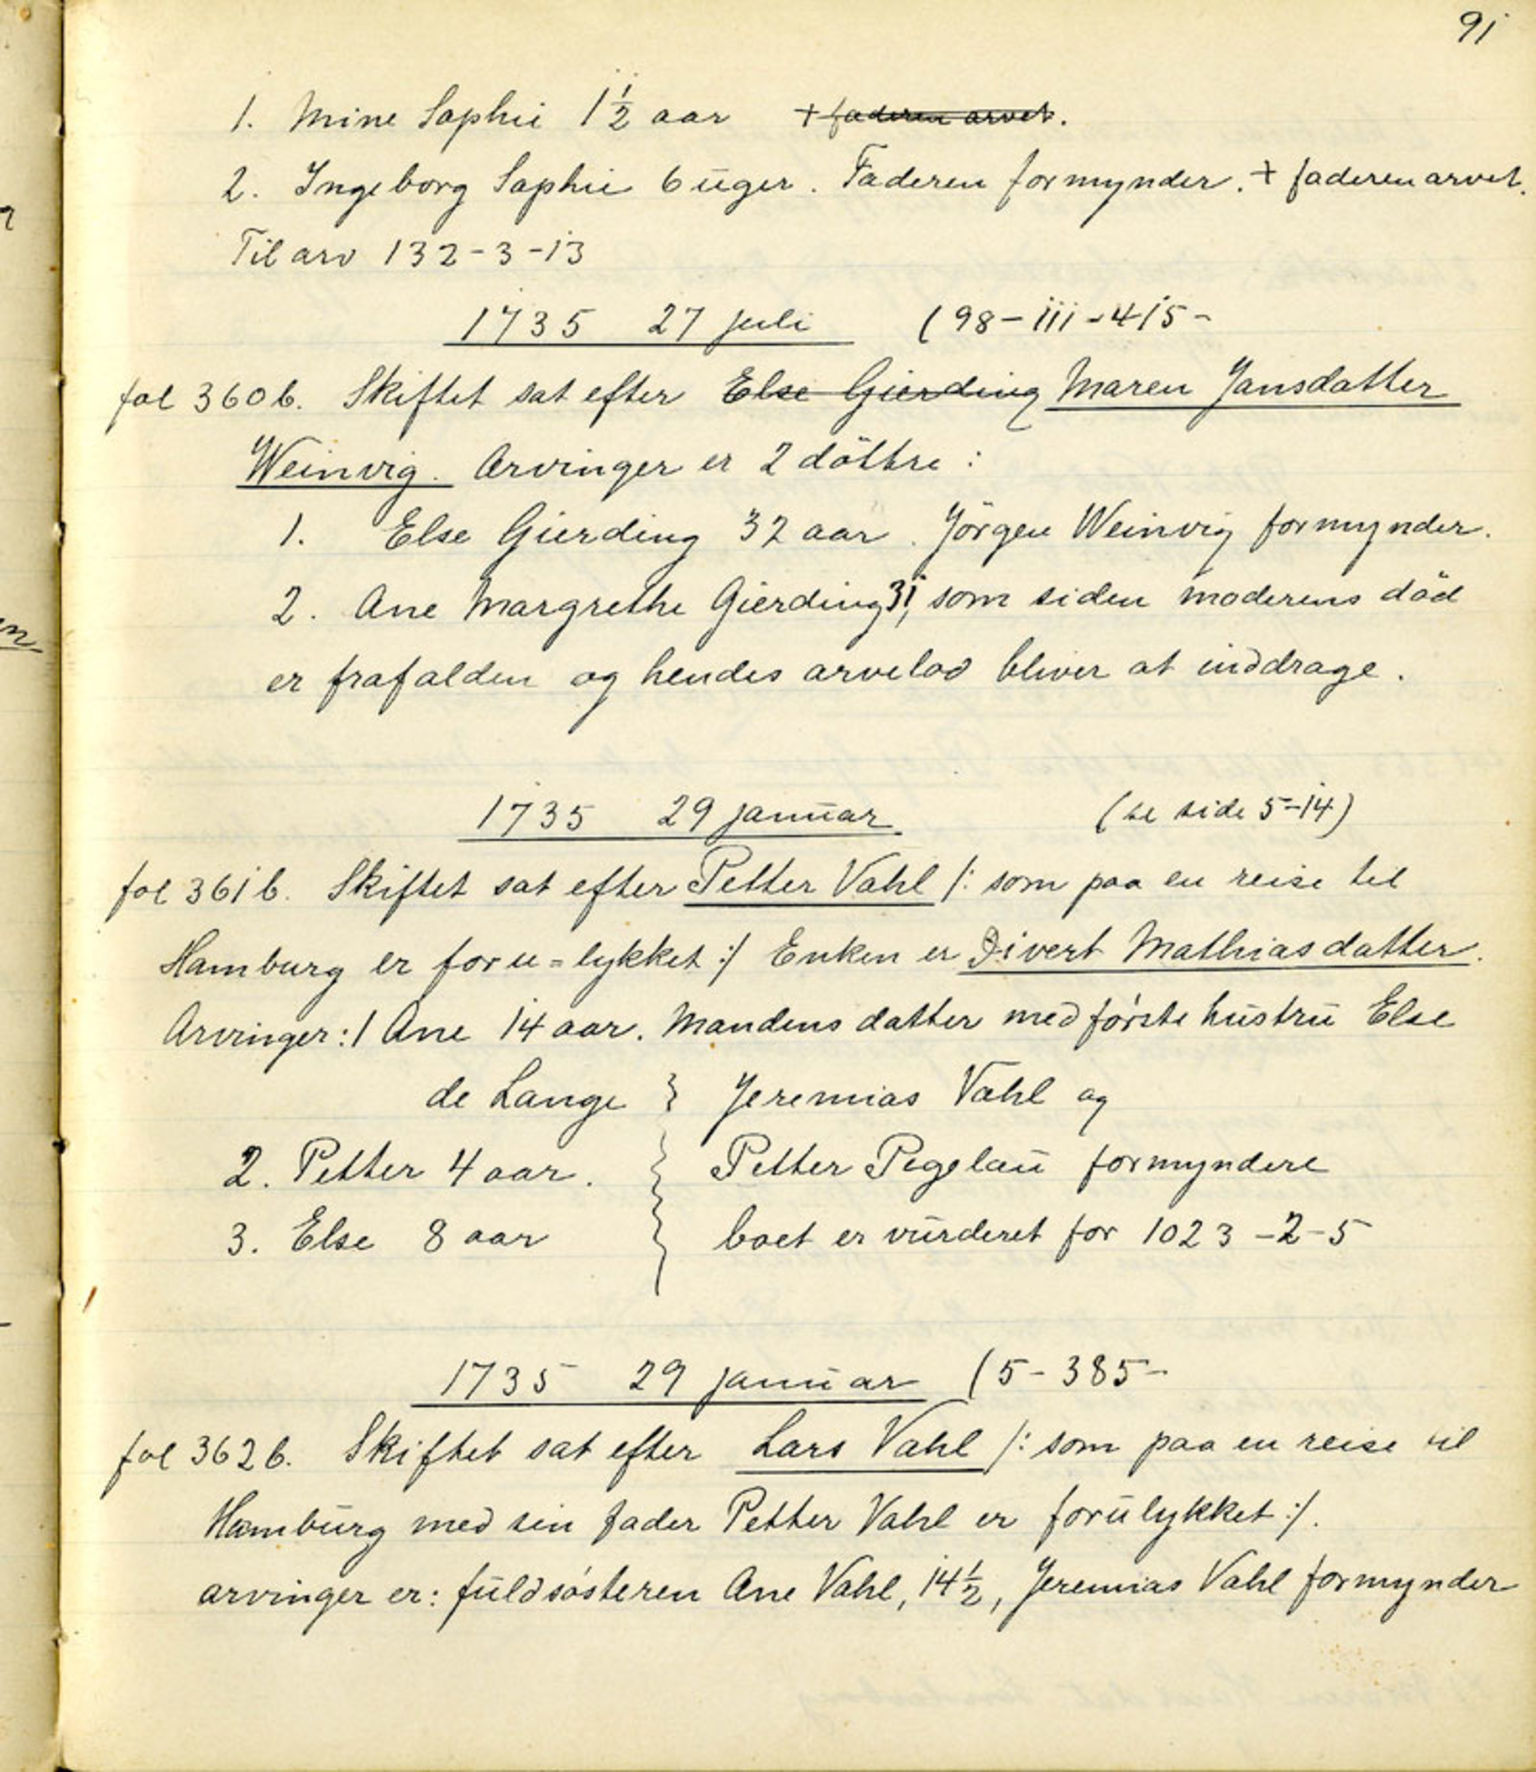 91
1. Mine Sophie 1½ aar + faderen arvet.
2. Ingeborg Sophie 6 uger. Faderen formynder. + faderen arvet.
Til arv 132-3-13
1735 27 juli (98-111-415-
fol 360b. Skiftet sat efter Else Gierding Maren Jansdatter
Weinvig. Arvinger er 2 döttre:
1. Else Gierding 32 aar. Jörgen Weinvig formynder.
2. Ane Margrethe Gierding 31, som siden moderens död
er frafalden og hendes arvelod bliver at inddrage.
1735 29 januar (se side 5-14)
fol 361b. Skiftet sat efter Petter Vahl /: som paa en reise til
Hamburg er foru=lykket :/ Enken er Divert Mathiasdatter.
Arvinger: 1 Ane 14 aar. Mandens datter med första hustru Else
de Lange } Jeremias Vahl og
2. Petter 4 aar. Petter Pegelau formyndere
3. Else 8 aar boet er vurderet for 1023-2-5
1735 29 januar (5-385-
fol 362b. Skiftet sat efter Lars Vahl /: som paa en reise til
Hamburg med sin fader Petter Vahl er forulykket :/.
arvinger er: fuldsösteren Ane Vahl, 14½, Jeremias Vahl formynder